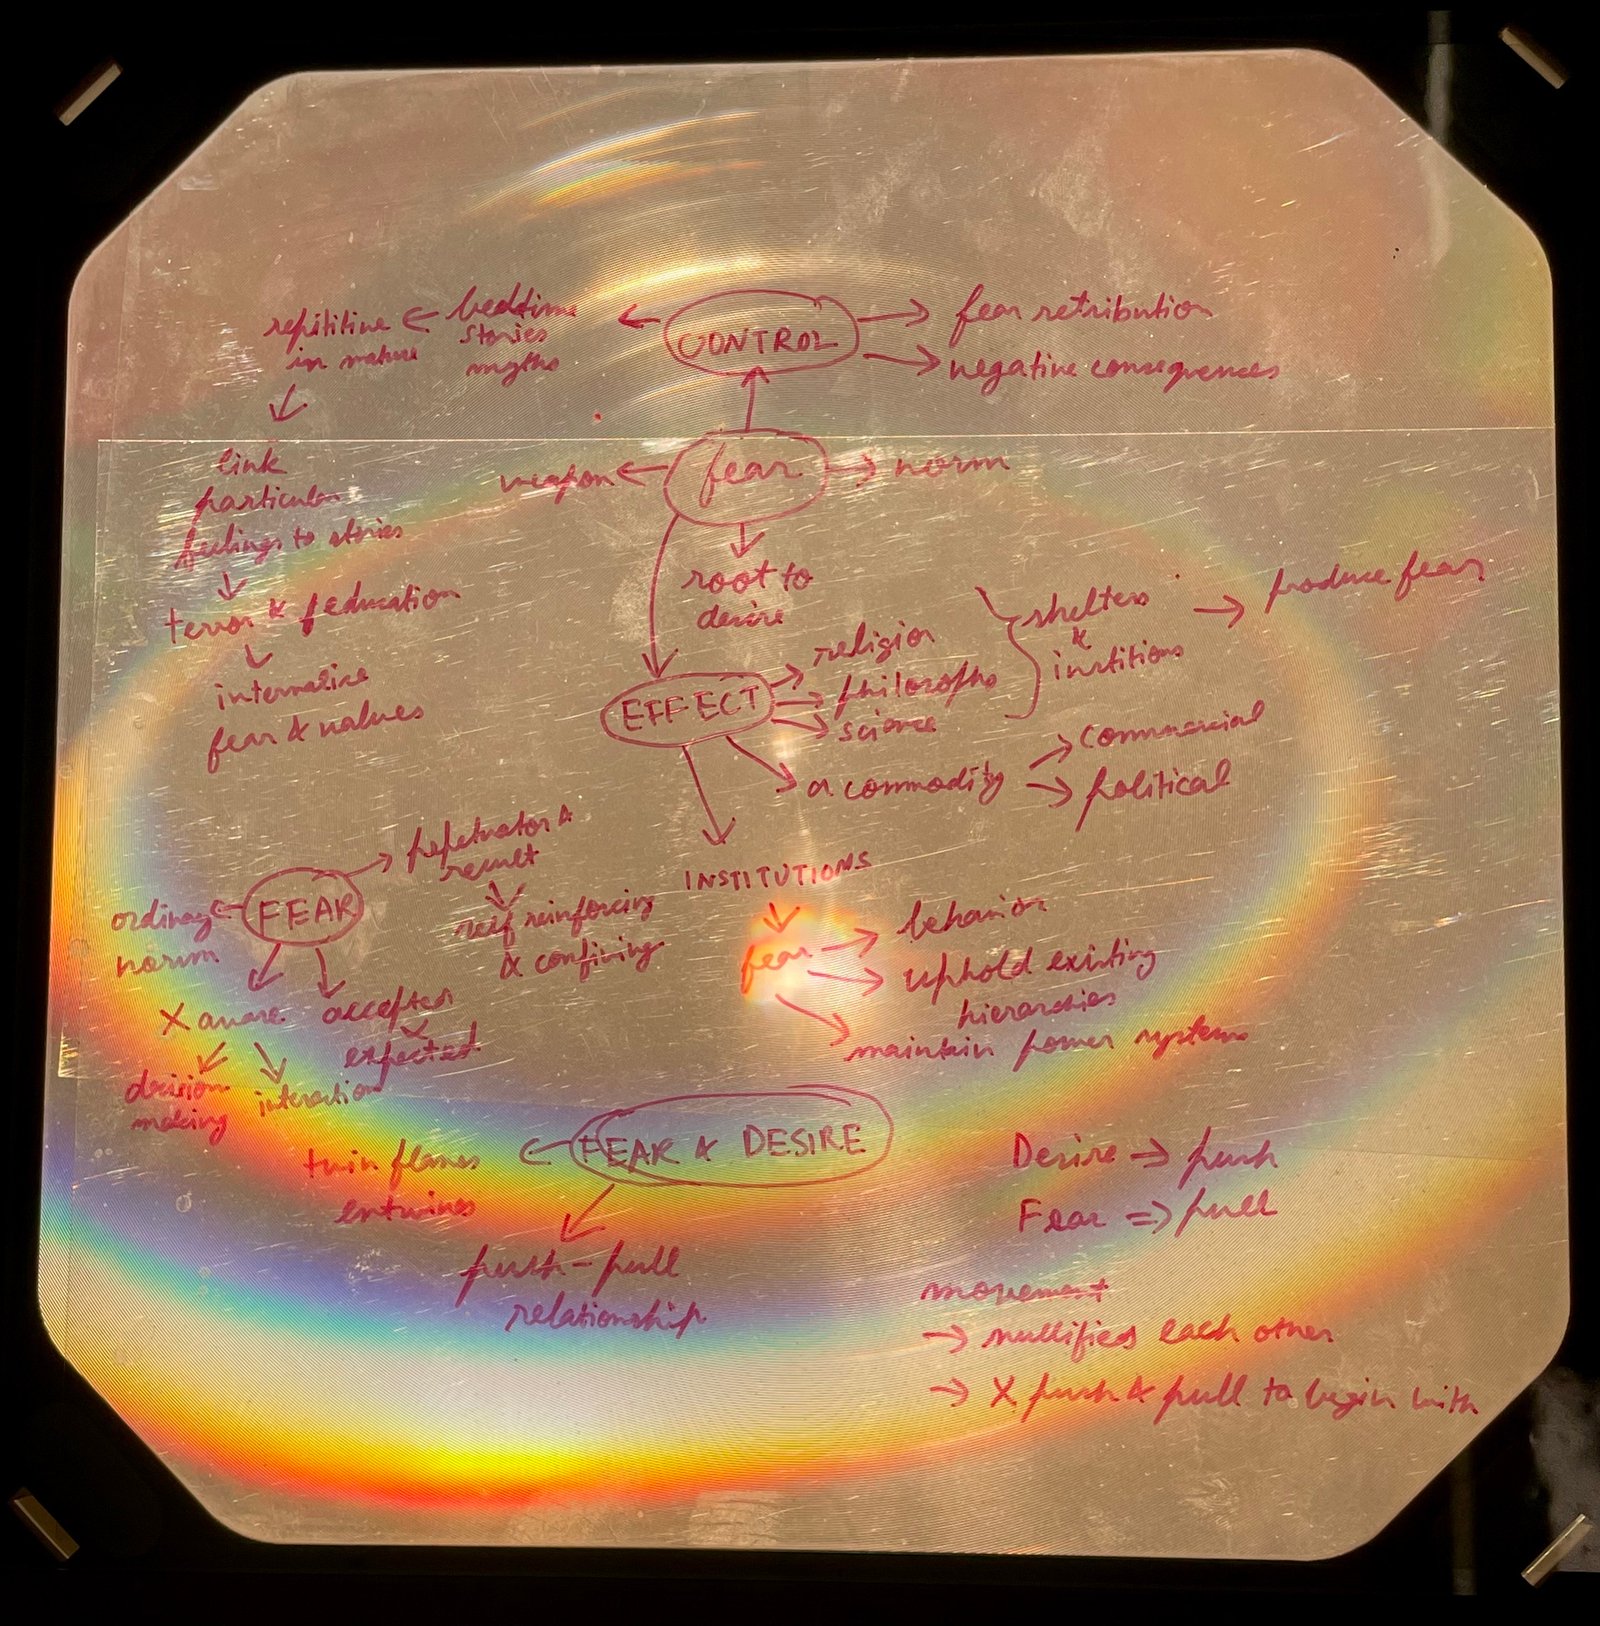 CONTROL
fear retribution
negative consequences
bedtime
stories
myths
repititive
in nature
link
particular
feelings to stories
terror &
education
internalise
fear & values
fear
weapon
norm
root to
desire
EFFECT
religion
philosophy
science
shelters
&
instituions
produce fear
a commodity
commercial
political
INSTITUTIONS
fear
behavior
uphold existing
hierarchies
maintain power systems
FEAR
perpetuator &
result
self reinforcing
& confining
ordinary
norm
X aware
accepted
expected
decision
making
interaction
FEAR & DESIRE
twin flames
entwines
push-pull
relationship
Desire → push
Fear ⇒ pull
movement
→ nullifies each other
→ X push & pull to begin with